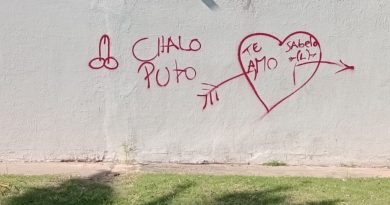 CHALO
PUTO
TE
AMO
SAbelo